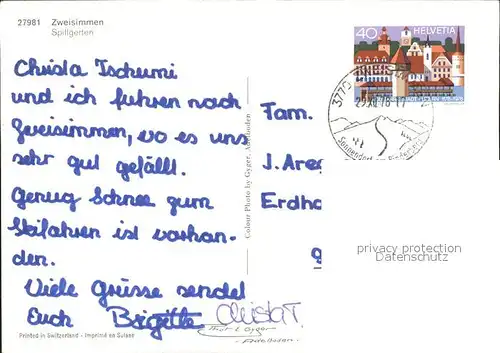 27981 Zweisimmen
Spillgerten
Christa Tschumi
und ich fuhren nach
Zweisimmen, wo es uns
sehr gut gefällt.
Genug Schnee zum
Skifahren ist vorhan-
den.
Viele Grüsse sendet
Euch Brigitte Christa T.
Printed in Switzerland - Imprimé en Suisse
Colour Photo by Gyger, Adelboden
40 HELVETIA
3770 ZWEISIMMEN
Sonnendorf Rinderberg
Fam.
J. Aren
Erdho
privacy protection
Datenschutz
Gyger
Adelboden